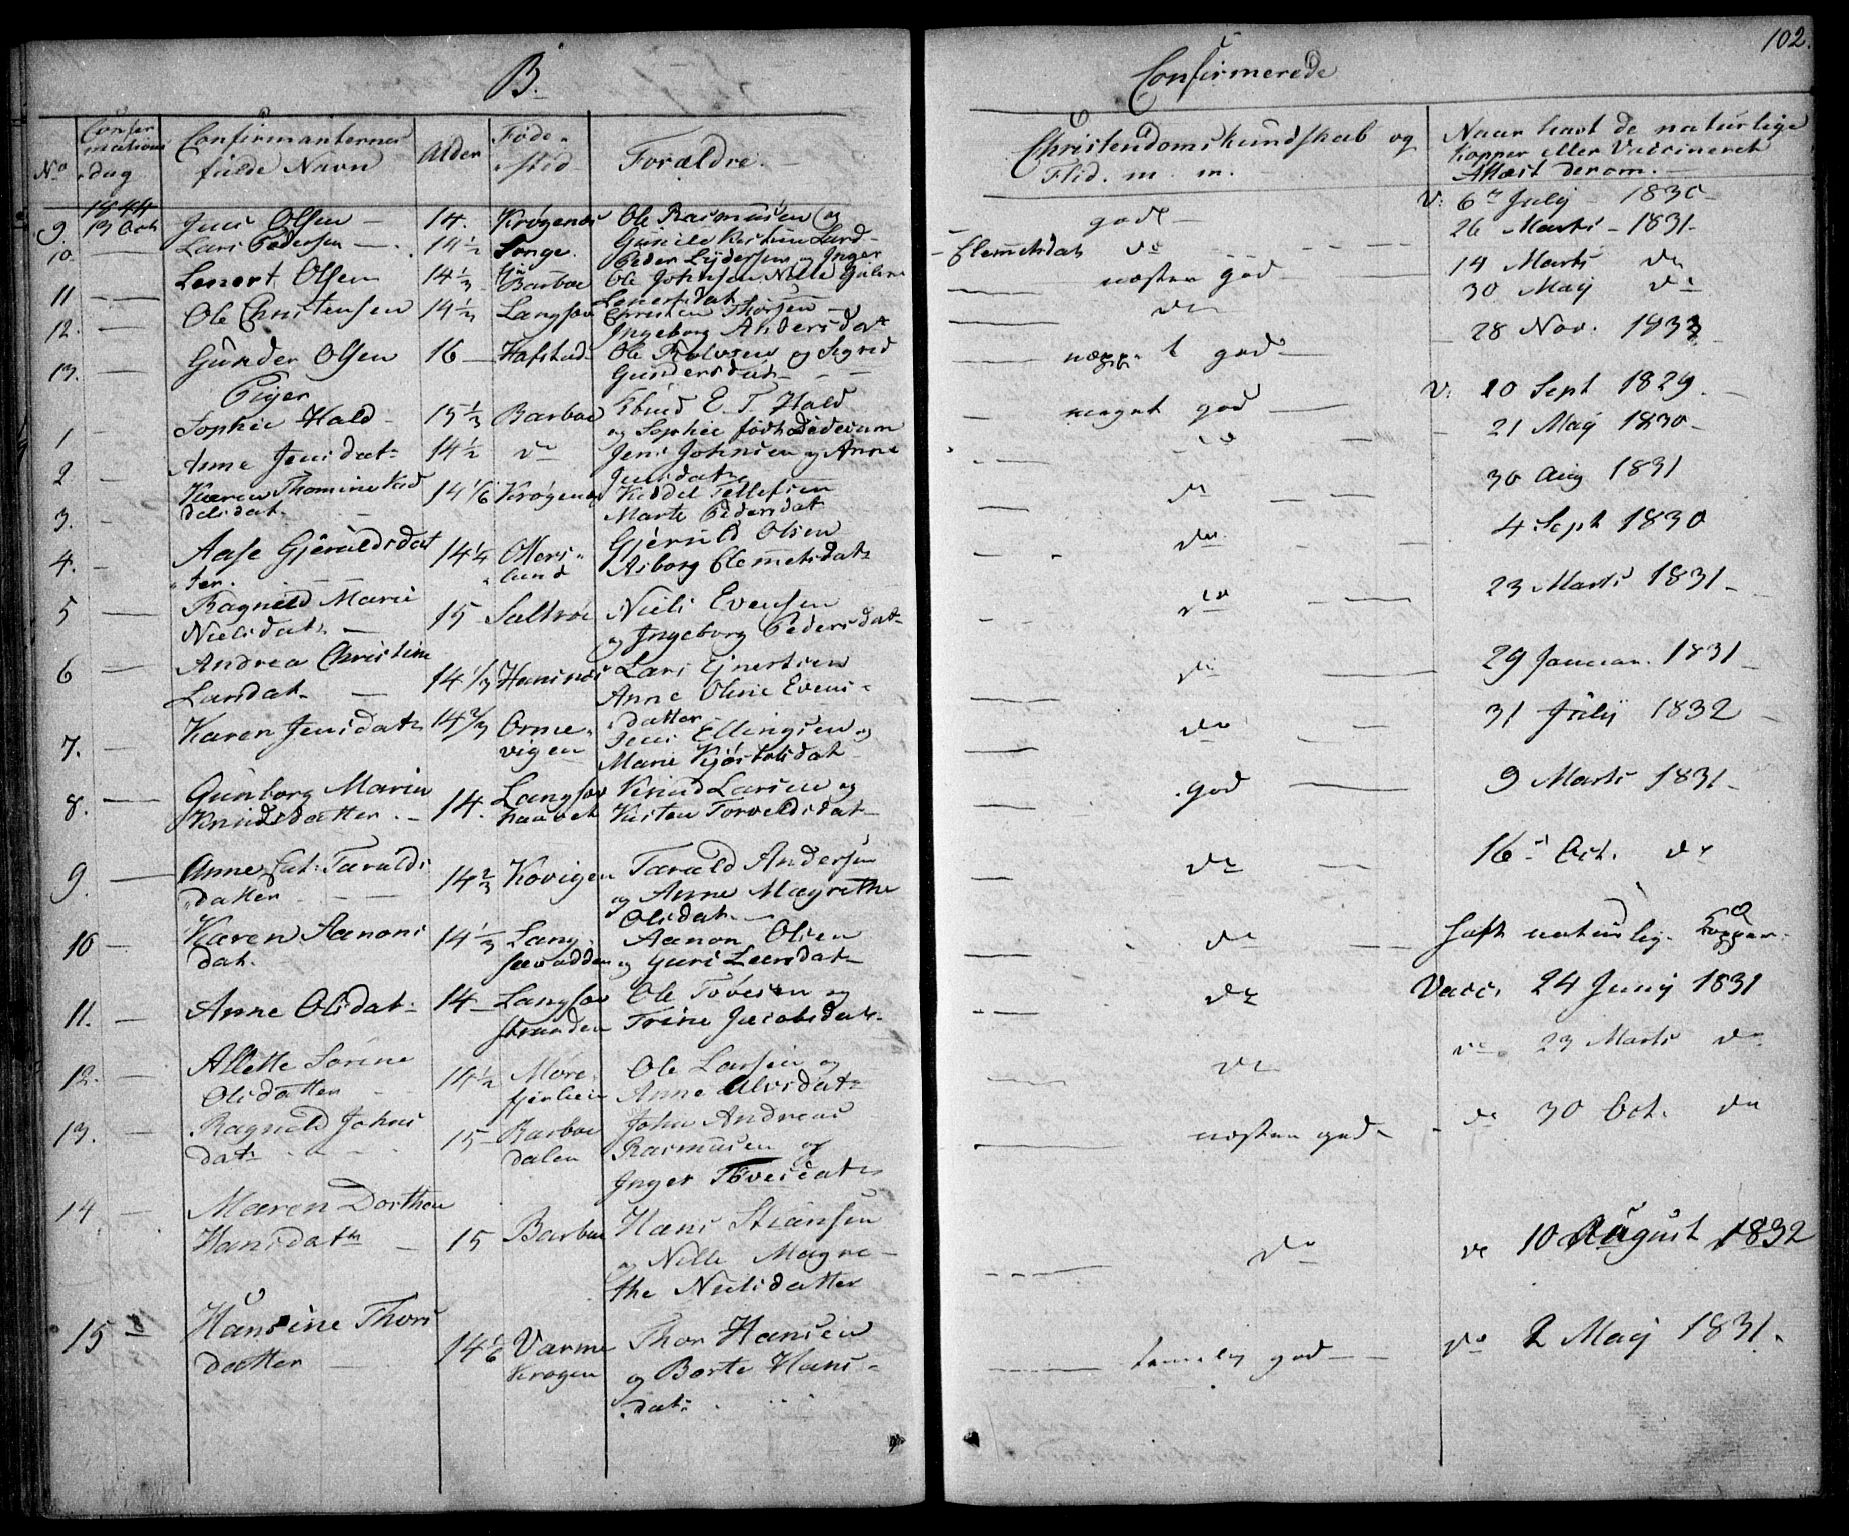 102.
B.
Confirmerede
No
Confir
mations
dag
Confirmanternes
fulde Navn
Alder
Føde
sted
Forældre.
Christendomskundskab og
Flid. m. m.
Naar havt de naturlige
Kopper eller Vaccineret
Attest derom.
1844
9. 13 Oct Jens Olsen 14. Krøgenes Ole Rasmusen og
godt V. 6 July
10. Lars Pedersen 14½ Songe
Peder Lydersen og Inger
Clemetsdat do 26 Marts 1831
11 Lenert Olsen 14⅓ Barboe Ole Johnsen Nille
Lenertsdat
næsten god 14 Marts do
12. Ole Christensen 14½ Christen Thorsen
Ingeborg Andersdat
do 30 May do
13. Gunder Olsen 16 Hafstad Ole og Sigred
Gundersdat
god 28 Nov. 1833
Piger
1 Sophie Hald 15⅓ Barboe E. T. Hald
og Sophie født
meget god V. 10 Sept 1829.
2. Anne Jensdat 14½ do Jens Johnsen og Anne
Jensdat
do 21 May 1830
3. Karen Thomine Kid
delsdat. 14 1/6 Krøgenes Kiddel Tellefsen
Marte Pedersdat
do 30 Aug 1831
4. Aase Gjeruldsdat
ter. 14¼ Otters
lund Gjeruld Olsen
Asborg Clemetsdat
do 4 Sept 1830
5 Ragnild Marie
Nielsdat 15 Saltrøe Niels Evensen
og Ingeborg Pedersdat
do 23 Marts 1831
6 Andrea Christine
Larsdat 14 1/3 Hansnes Lars Ejnertsen
Anne Oline Evens
datter
do 29 Januar. 1831
7. Karen Jensdat 14 2/3 Orne
vigen Jens Ellingsen og
Marie Kjøstolsdat
do 31 July 1832
8. Gunborg Marie
Knudsdatter 14. Langsøv
Knud Larsen og
Kisten Torveldsdat
god 9 Marts 1831
9. Anne Cat: Taralds
datter 14⅔ Kovigen Tarald Andersen
og Anne Magrethe
Olsdat
do 16 Oct. do
10 Karen Aanons
dat. 14⅓ Lang
Aanon Olsen
og Guri Larsdat
do haft naturlig. Kopper.
11. Anne Olsdat 14 Langsøv
stranden Ole Tovesen og
Trine Jacobsdat
do Vacc. 24 Juny 1831
12. Allette Sorine
Olsdatter 14½ More
fjerheien Ole Larsen og
Anne Alvsdat
do do 23 Marts do
13. Ragnild Johns
dat 15 Barboe
dalen John Andreas
Rasmusen og
Inger Tovesdat
næsten god do 30 Oct. do
14 Maren Dorthea
Hansdatt 15 Barboe Hans Stiansen
og Nille Magre
the Nielsdatter
do do 10 August 1832
15 Hansine Thors
datter 14 1/6 Varme
krogen Thor Hansen
og Borte Hans
dat
temelig god do 2 May 1831.